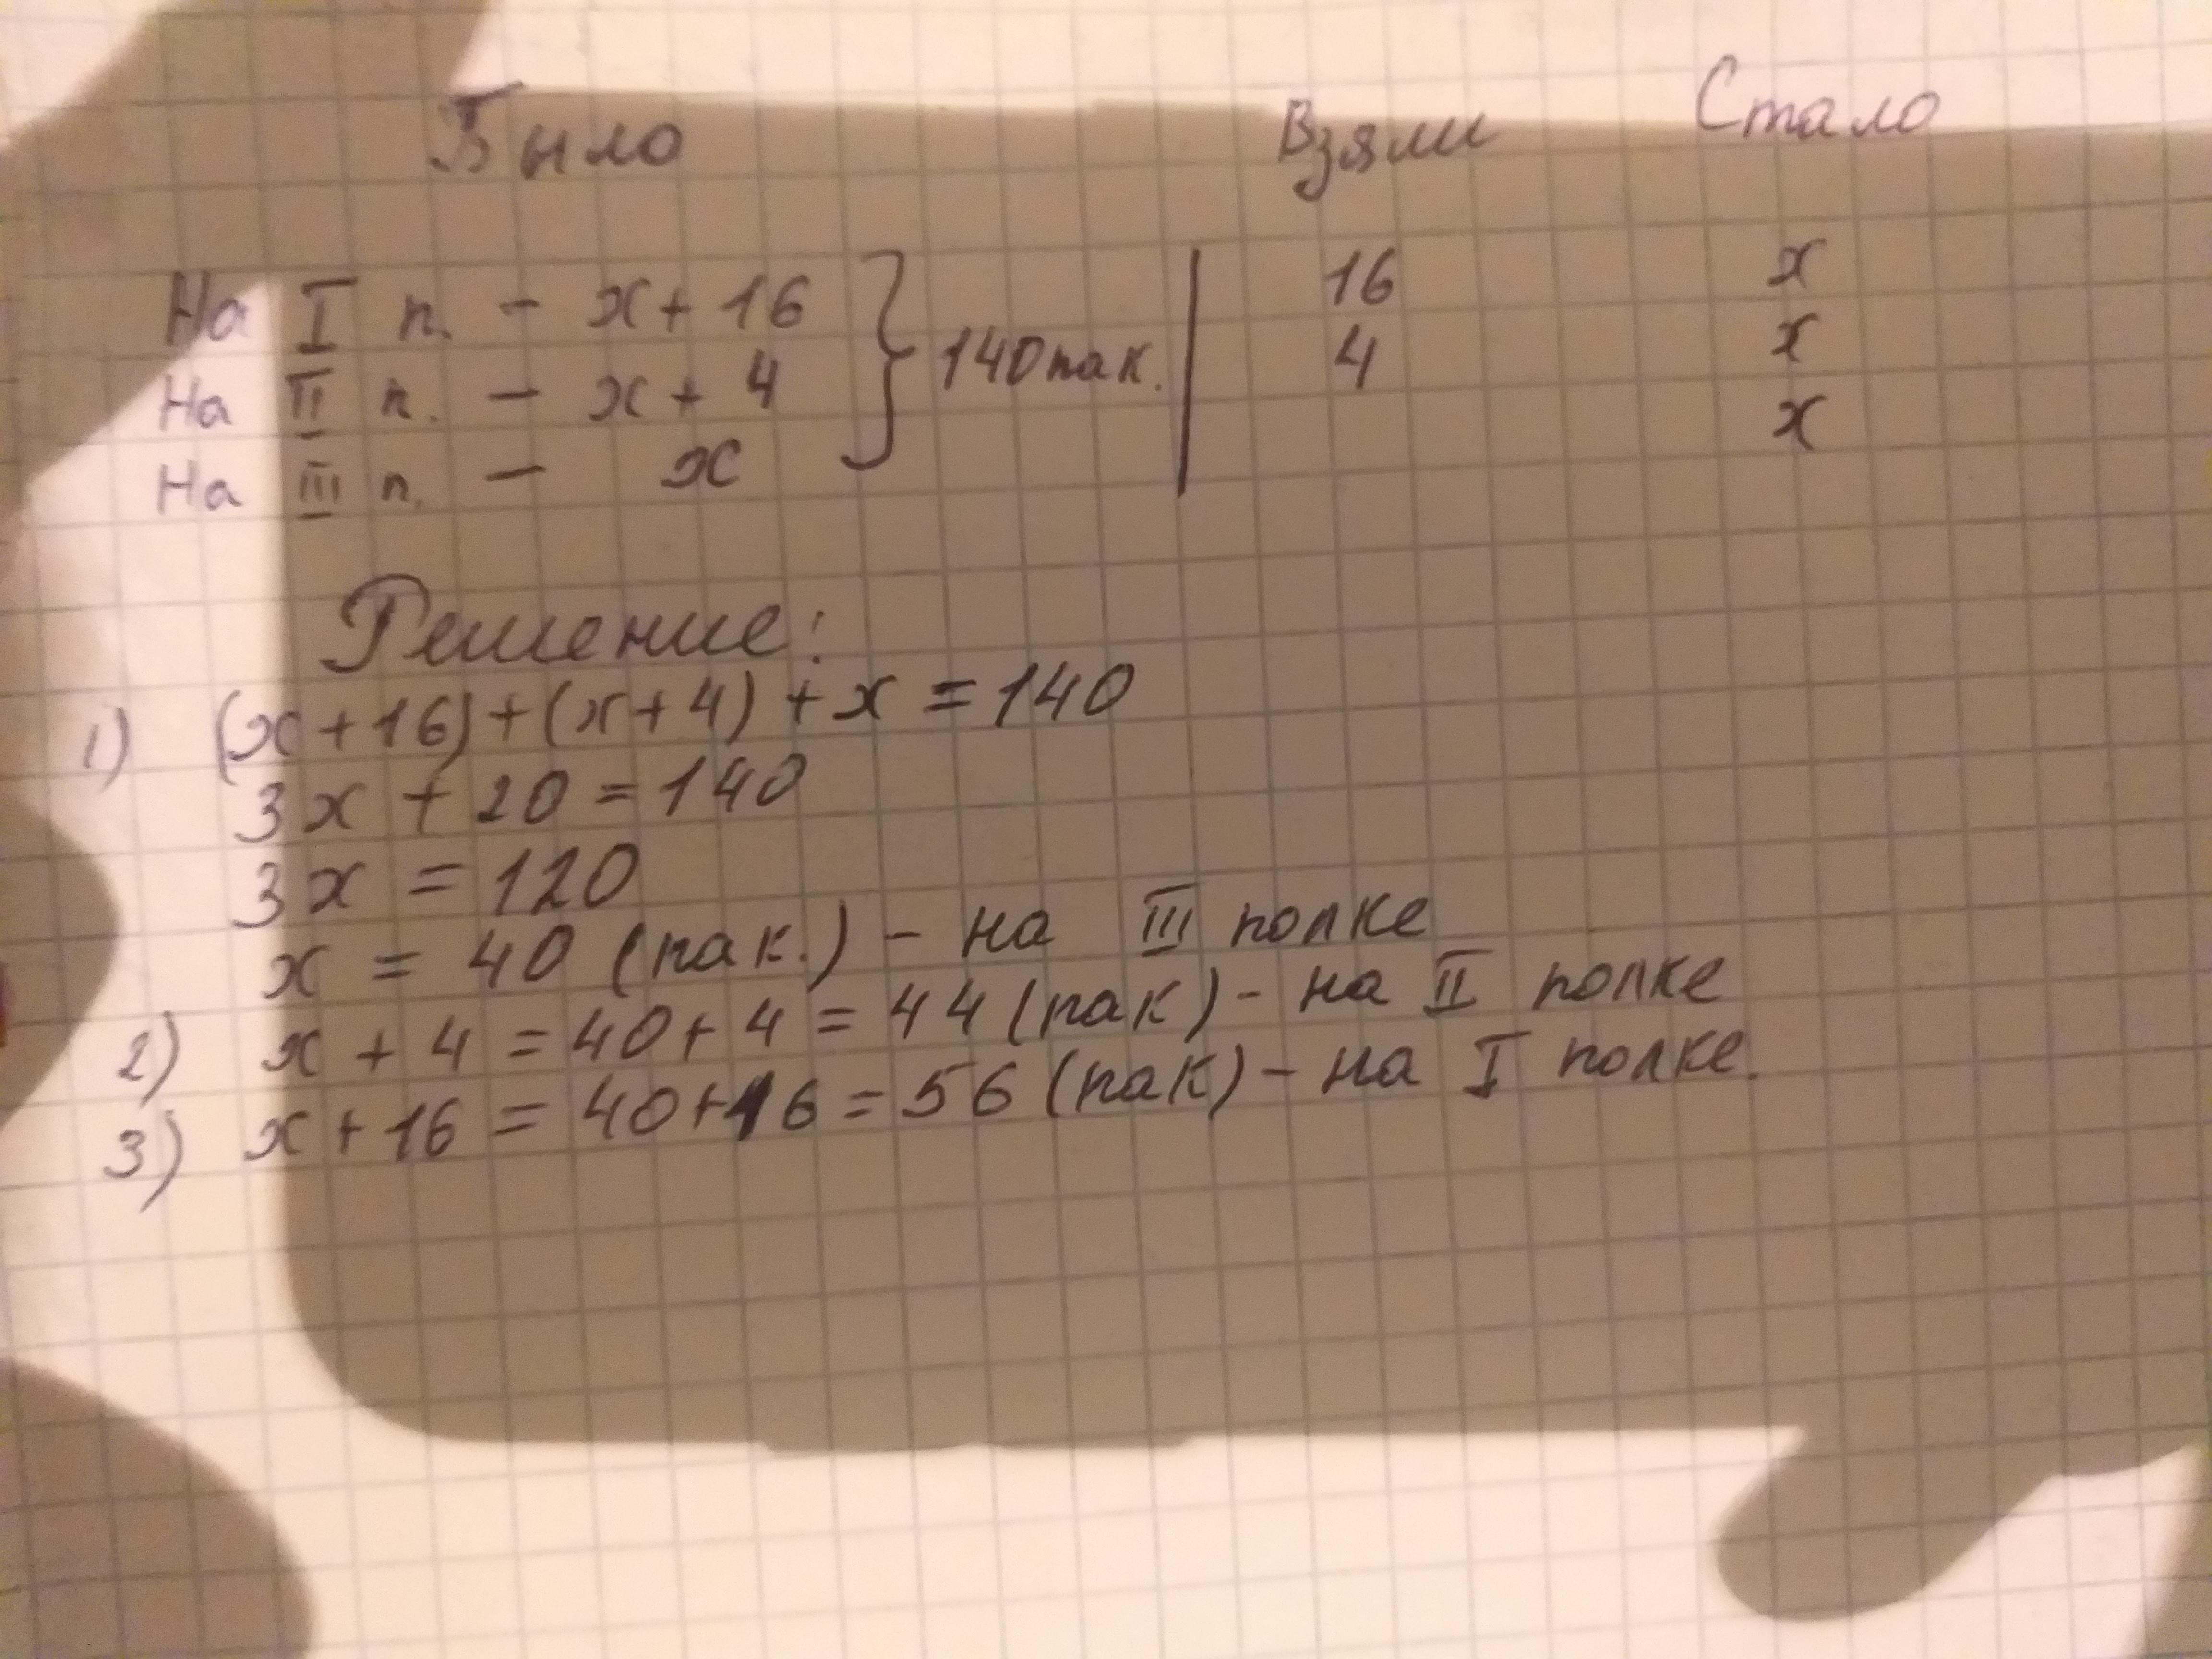 Было Взяли Стало
На I п. - x + 16 } 140 пак. | 16 x
На II п. - x + 4 4 x
На III п. - x x
Решение:
1) (x + 16) + (x + 4) + x = 140
3x + 20 = 140
3x = 120
x = 40 (пак.) - на III полке
2) x + 4 = 40 + 4 = 44 (пак) - на II полке
3) x + 16 = 40 + 16 = 56 (пак) - на I полке.